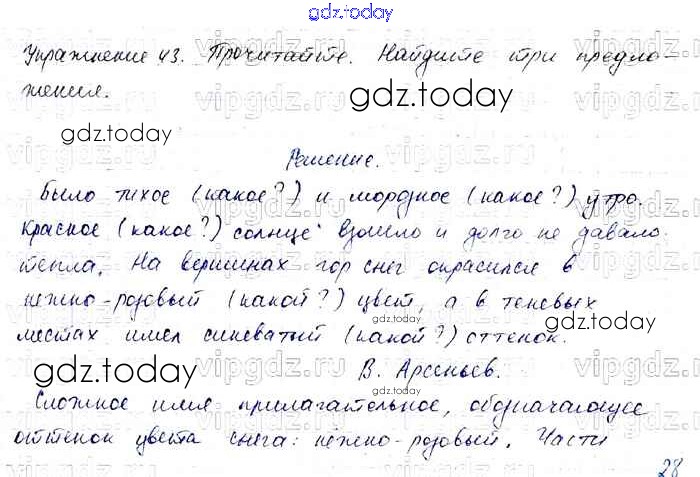 gdz.today
Упражнение 43. Прочитайте. Найдите три предло-
жения.
gdz.today
gdz.today
Решение.
Было тихое (какое?) и морозное (какое?) утро.
Красное (какое?) солнце взошло и долго не давало
тепла. На вершинах гор снег окрасился в
нежно-розовый (какой?) цвет, а в теневых
местах имел синеватый (какой?) оттенок.
gdz.today
gdz.today
gdz.today
gdz.today
gdz.today
В. Арсеньев.
Сложное имя прилагательное, обозначающее
оттенок цвета снега: нежно-розовый. Части
28
vipgdz.ru